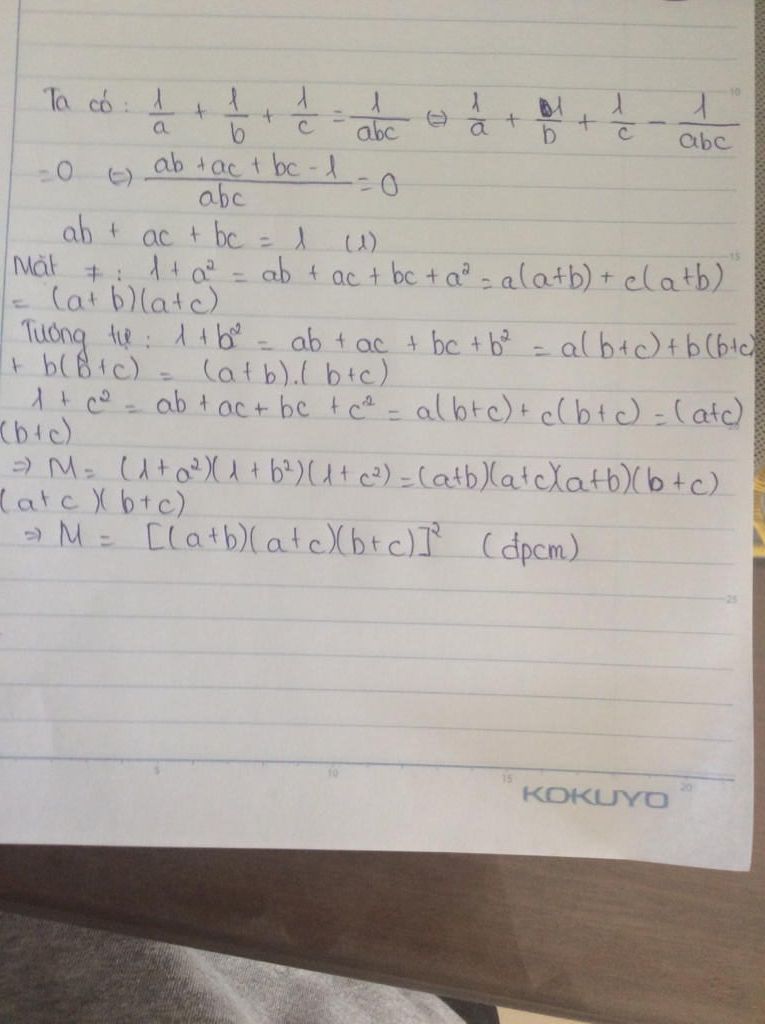 Ta có : 1/a + 1/b + 1/c = 1/abc ⇔ 1/a + 1/b + 1/c - 1/abc
= 0 ⇔ (ab + ac + bc - 1)/abc = 0
ab + ac + bc = 1 (1)
Mặt ≠ : 1 + a² = ab + ac + bc + a² = a(a+b) + c(a+b)
= (a+b)(a+c)
Tương tự : 1 + b² = ab + ac + bc + b² = a(b+c) + b(b+c)
+ b(B+c) = (a+b).(b+c)
1 + c² = ab + ac + bc + c² = a(b+c) + c(b+c) = (a+c)
(b+c)
⇒ M = (1+a²)(1+b²)(1+c²) = (a+b)(a+c)(a+b)(b+c)
(a+c)(b+c)
⇒ M = [(a+b)(a+c)(b+c)]² (đpcm)
10
15
25
5 10 15 20
KOKUYO